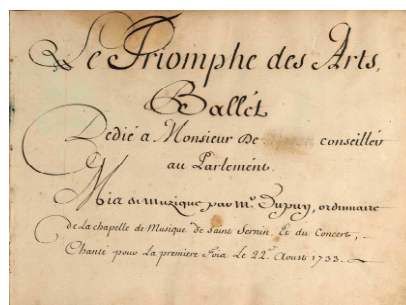 Le Triomphe des Arts,
Ballét
Dedié a Monsieur De conseillér
au Parlement.
Mis en muzique par Mr. Dupuy, ordinaire
de La chapelle de Musique de saint Sernin, Et du Concert,
Chanté pour La premiere Fois Le 22e. Aoust 1733.